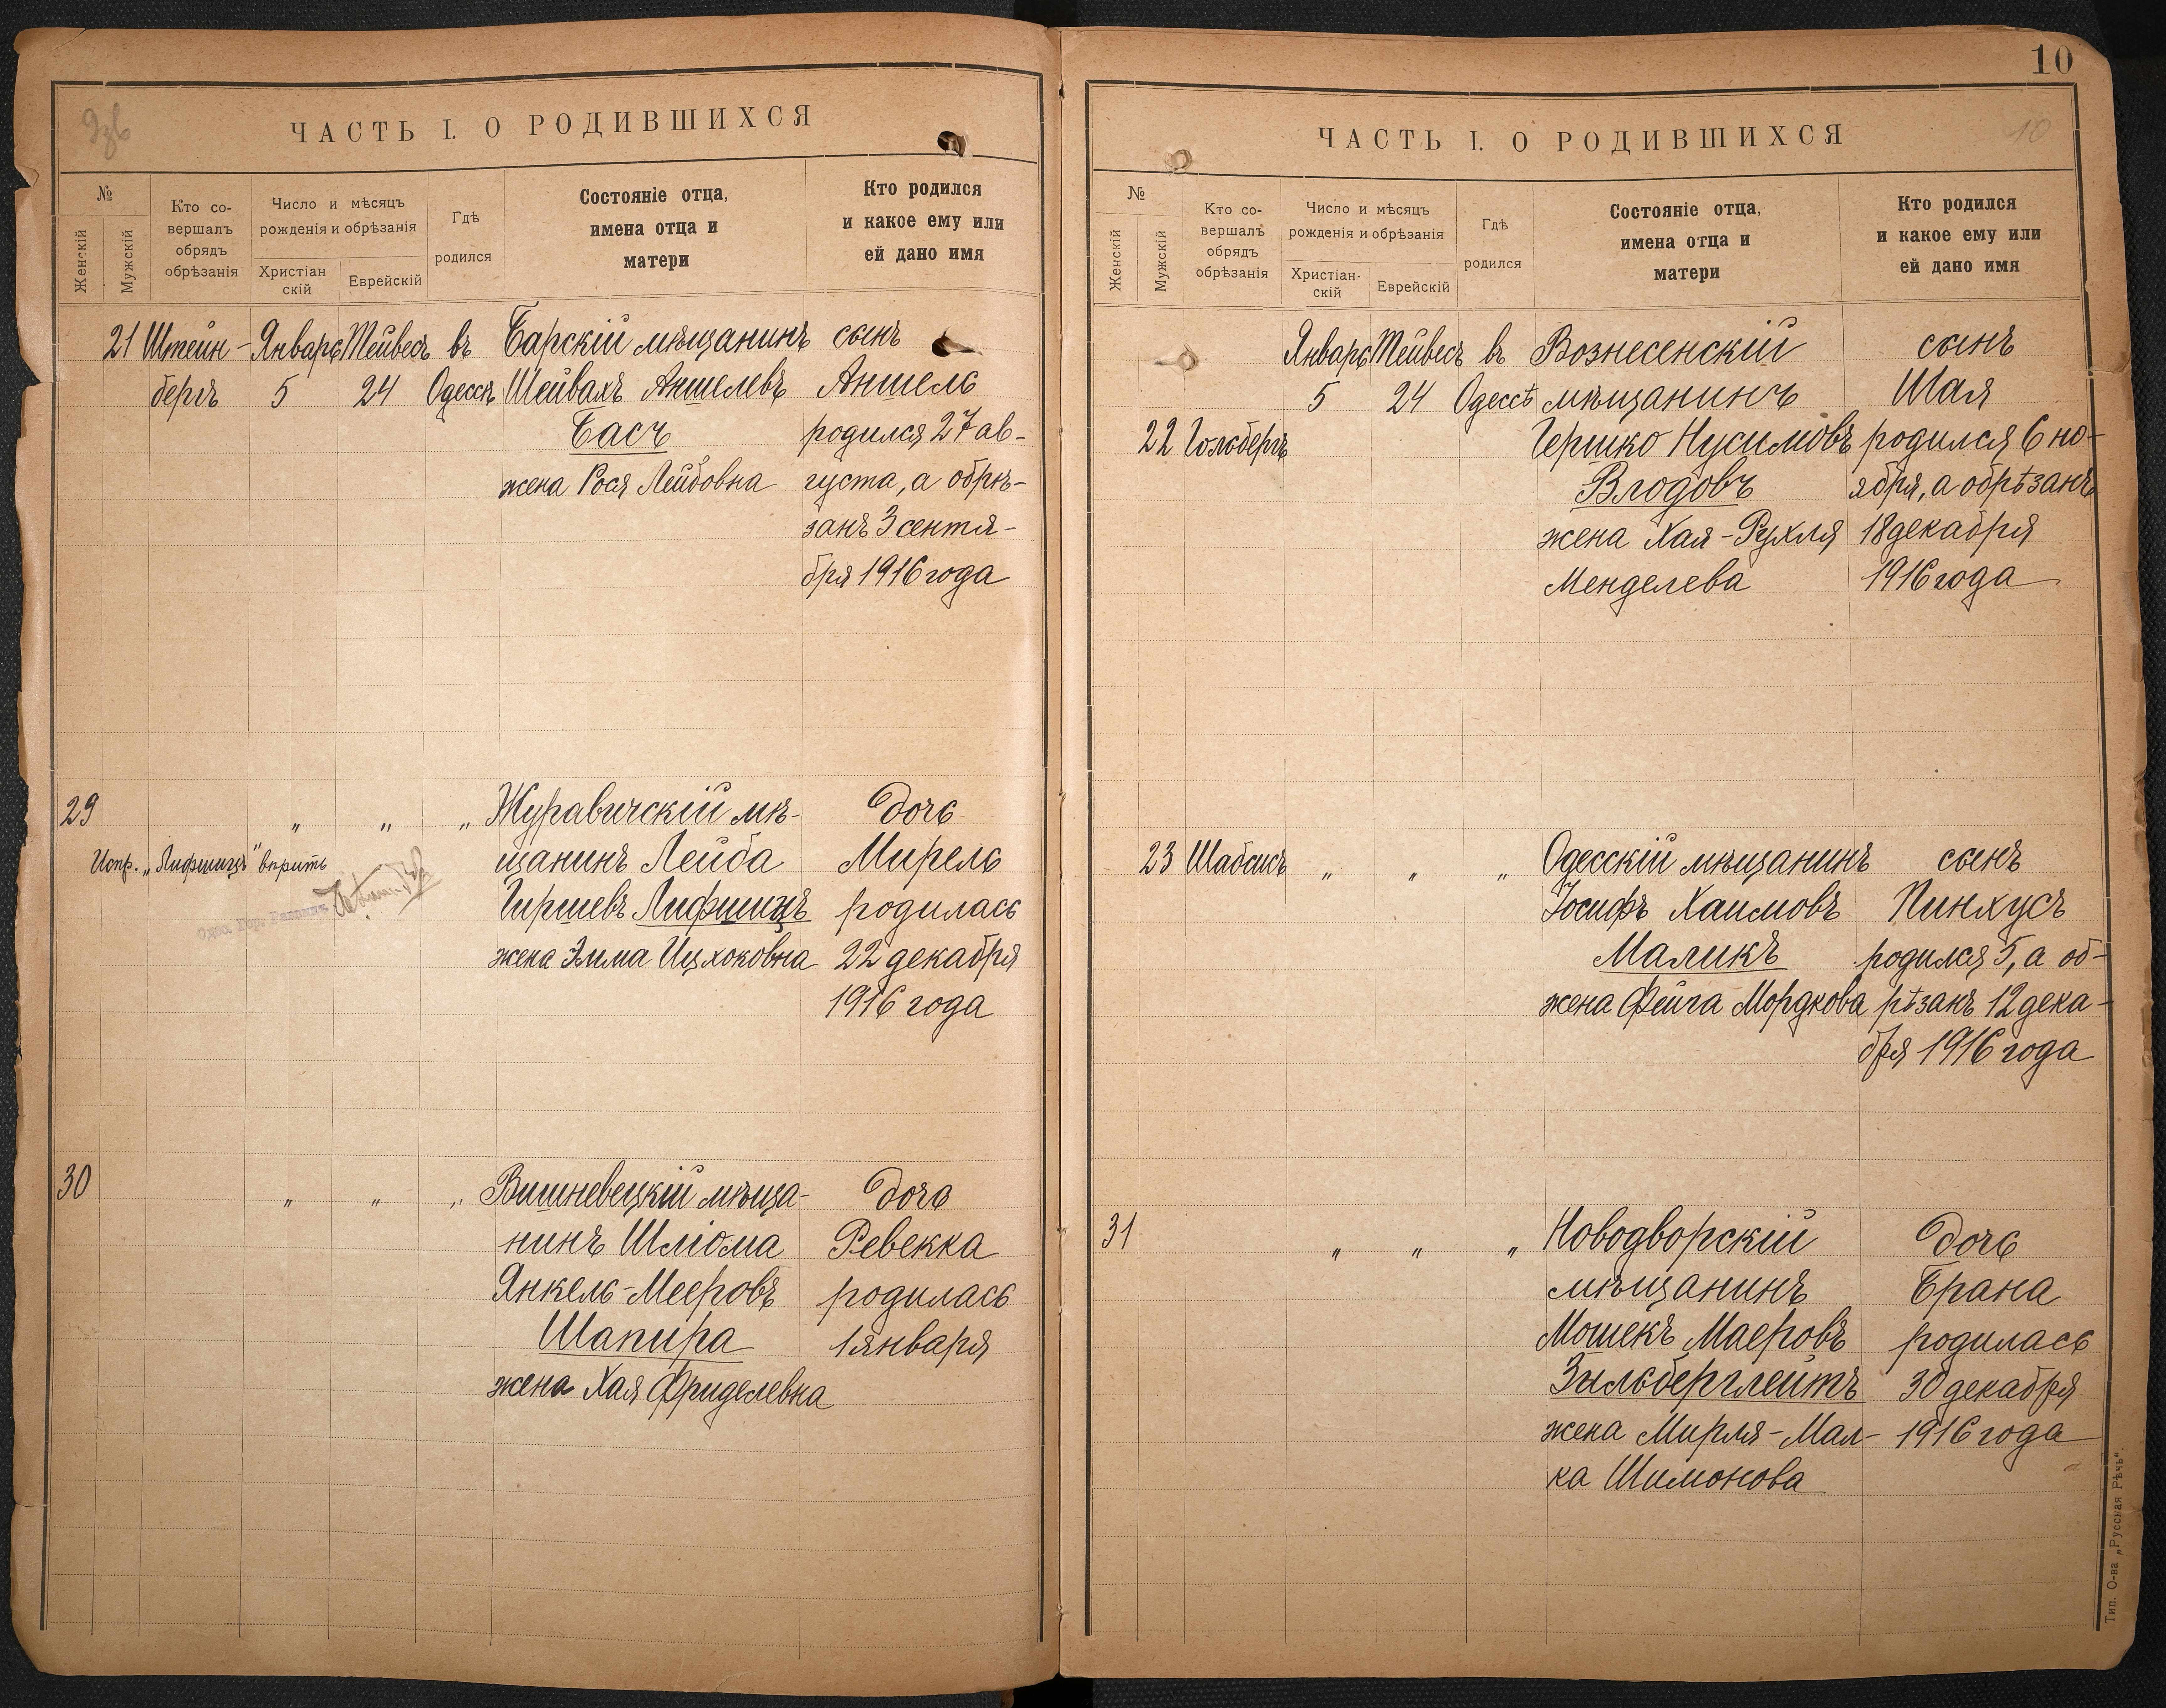 ЧАСТЬ I. О РОДИВШИХСЯ
№
Женскій
Мужскій
Кто со-
вершалъ
обрядъ
обрѣзанія
Число и мѣсяцъ
рожденія и обрѣзанія
Христіан
скій
Еврейскій
Гдѣ
родился
Состояніе отца,
имена отца и
матери
Кто родился
и какое ему или
ей дано имя
21 Штейн- Январь Тейвесъ въ Барскій мѣщанинъ сынъ
бергъ 5 24 Одессѣ Шейвахъ Аншелевъ Аншель
Басъ родился 27 ав-
жена Рося Лейбовна густа, а обрѣ-
занъ 3 сентя-
бря 1916 года
29 " " " Журавичскій мѣ- дочь
Испр. „Лифшицъ" вѣрить щанинъ Лейба Мирель
Гиршевъ Лифшицъ родилась
жена Элма Ицхоковна 22 декабря
1916 года
30 " " " Вишневецкій мѣща- дочь
нинъ Шліома Ревекка
Янкель-Мееровъ родилась
Шапира 1 января
жена Хая Фриделевна
10
ЧАСТЬ I. О РОДИВШИХСЯ
10
№
Женскій
Мужскій
Кто со-
вершалъ
обрядъ
обрѣзанія
Число и мѣсяцъ
рожденія и обрѣзанія
Христіан-
скій
Еврейскій
Гдѣ
родился
Состояніе отца,
имена отца и
матери
Кто родился
и какое ему или
ей дано имя
Январь Тейвесъ въ Вознесенскій сынъ
5 24 Одессѣ мѣщанинъ Шая
22 Гольбергъ Гершко Нусимовъ родился 6 но-
Влодовъ ября, а обрѣзанъ
жена Хая-Рухля 18 декабря
Менделева 1916 года
23 Шабсисъ " " " Одесскій мѣщанинъ сынъ
Іосифъ Хаимовъ Пинхусъ
Маликъ родился 5, а об-
жена Фейга Мордкова рѣзанъ 12 дека-
бря 1916 года
31 " " " Новодворскій дочь
мѣщанинъ Брана
Мошекъ Маеровъ родилась
Зыльберглейтъ 30 декабря
жена Мирля-Мал- 1916 года
ка Шимонова
Тип. О-ва „Русская Рѣчь"